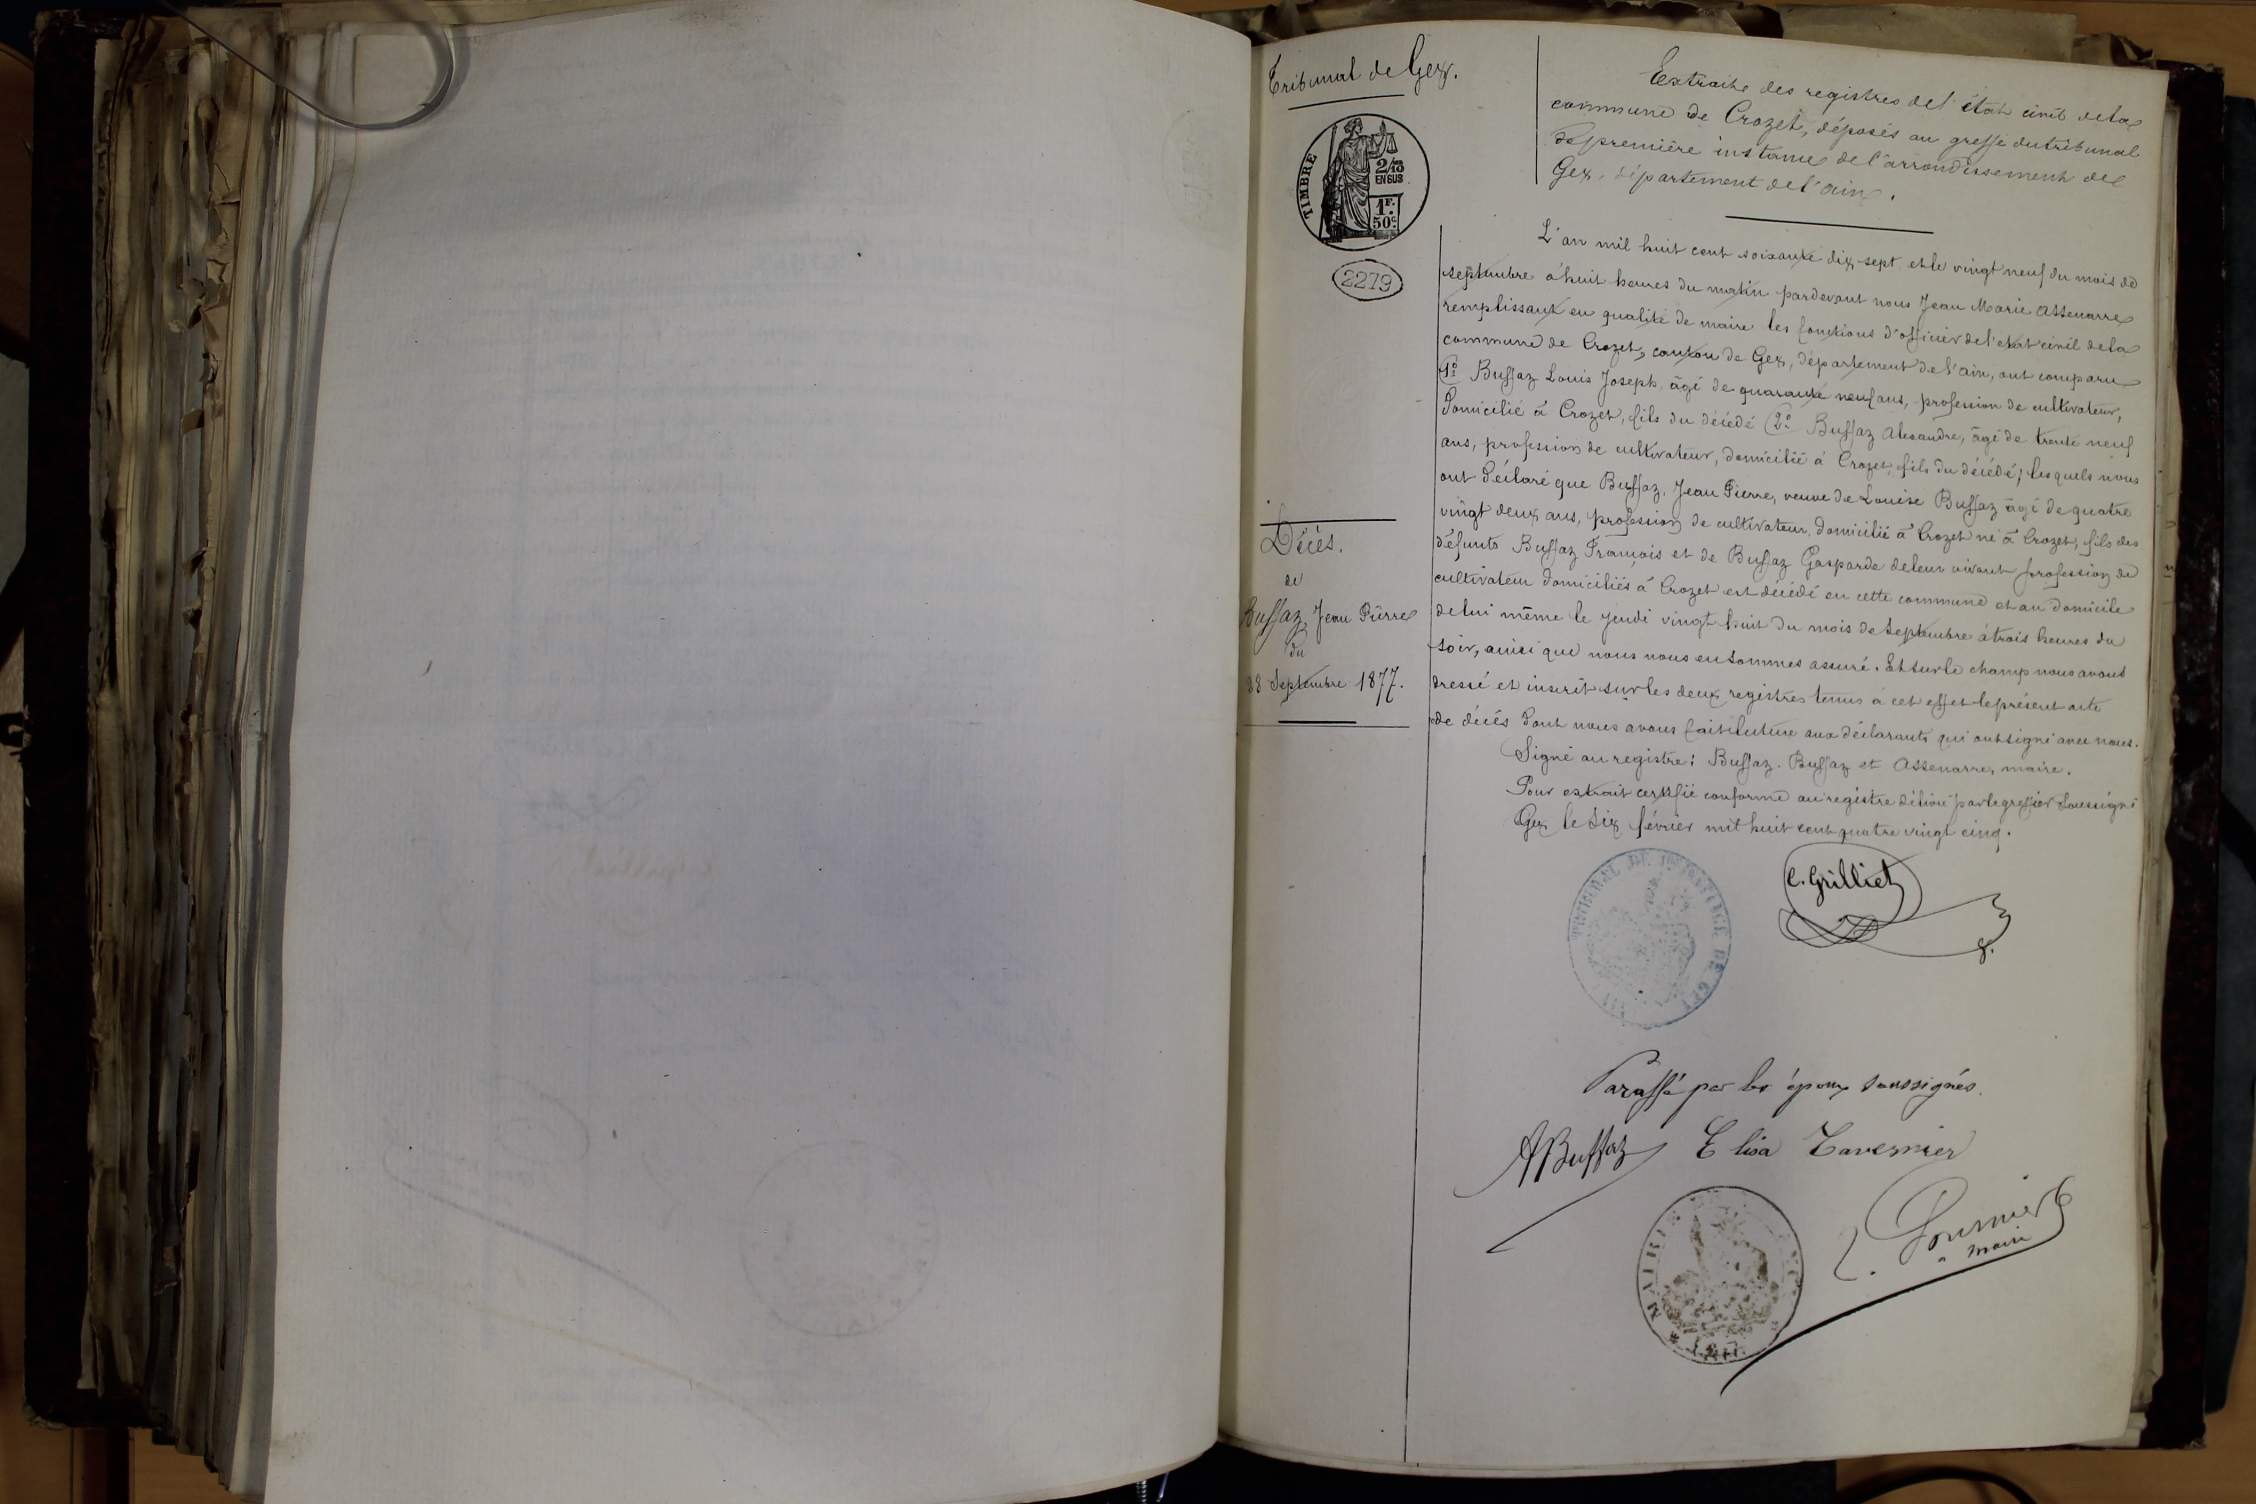 Tribunal de Gex.
TIMBRE
2/10
EN SUS
1F.
50c.
2279
Extrait des registres de l'état civil de la
commune de Crozet, déposés au greffe du tribunal
de première instance de l'arrondissement de
Gex, département de l'ain.
L'an mil huit cent soixante dix-sept et le vingt neuf du mois de
septembre à huit heures du matin pardevant nous Jean Marie Assenarre
remplissant en qualité de maire les fonctions d'officier de l'etat civil de la
commune de Crozet, canton de Gex, département de l'ain, ont comparu
1o Buffaz Louis Joseph, âgé de quarante neuf ans, profession de cultivateur,
domicilié à Crozet, fils du décédé 2o Buffaz Alexandre, âgé de trente neuf
ans, profession de cultivateur, domicilié à Crozet, fils du décédé; lesquels nous
ont déclaré que Buffaz, Jean Pierre, veuve de Louise Buffaz âgé de quatre
vingt deux ans, profession de cultivateur, domicilié à Crozet né à Crozet, fils des
défunts Buffaz François et de Buffaz Gasparde de leur vivant profession de
cultivateur domiciliés à Crozet est décédé en cette commune et au domicile
de lui même le jeudi vingt huit du mois de Septembre à trois heures du
soir, ainsi que nous nous en sommes assuré. Et sur le champ nous avons
dressé et inscrit sur les deux registres tenus à cet effet le présent acte
de décès dont nous avons fait lecture aux déclarants qui ont signé avec nous.
Signé au registre: Buffaz. Buffaz et Assenarre, maire.
Pour extrait certifié conforme au registre délivré par le greffier soussigné
Gex le six février mil huit cent quatre vingt cinq.
Décès.
de
Buffaz, Jean Pierre
du
28 Septembre 1877.
C. Grilliet
g.
TRIBUNAL DE 1re INSTANCE DE GEX
Paraffé par les époux soussignés.
ABuffaz Elisa Tavernier
Fournier
maire
MAIRIE